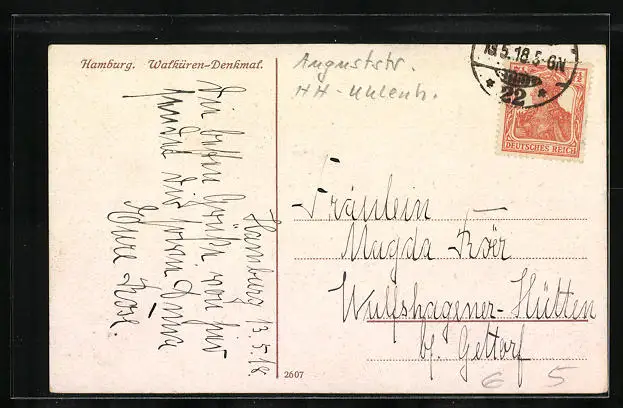 Hamburg. Walküren-Denkmal.
Auguststr.
HH-Uhlenh.
13.5.18.5-6N
* 22 *
DEUTSCHES REICH
Fräulein
Magda
Wulfshagener-Hütten
b/ Gettorf
Hamburg 13.5.18
Die besten Grüße von hier
sendet Dir
2607
6 5